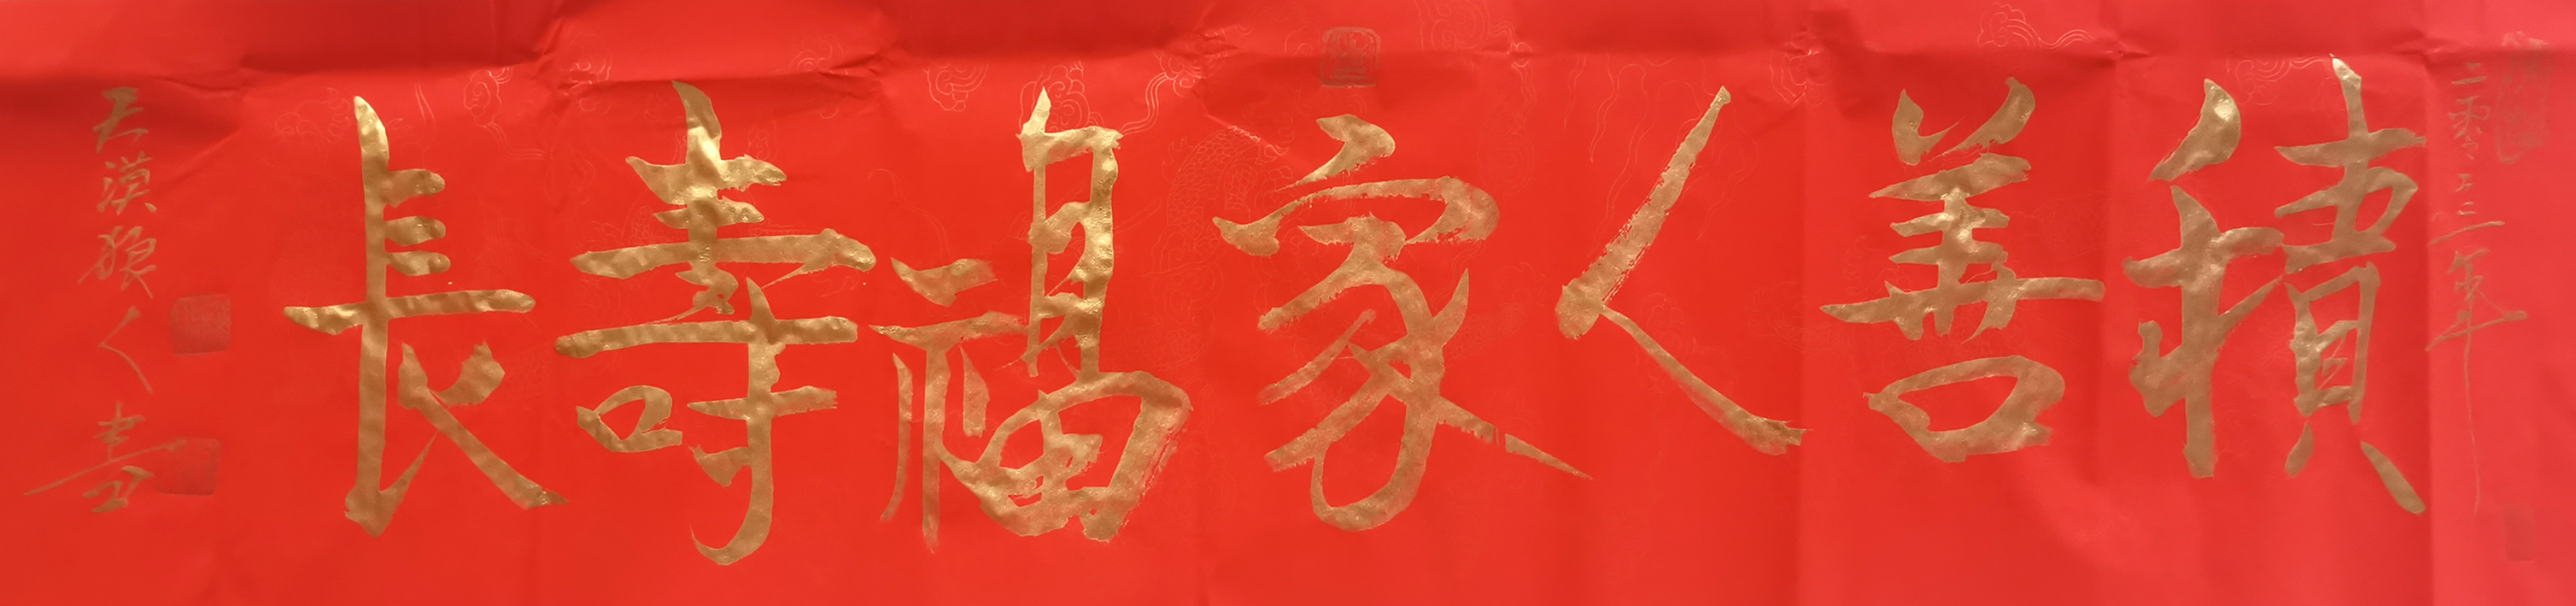 二零二三年
積善人家福壽長
大漠狼人書